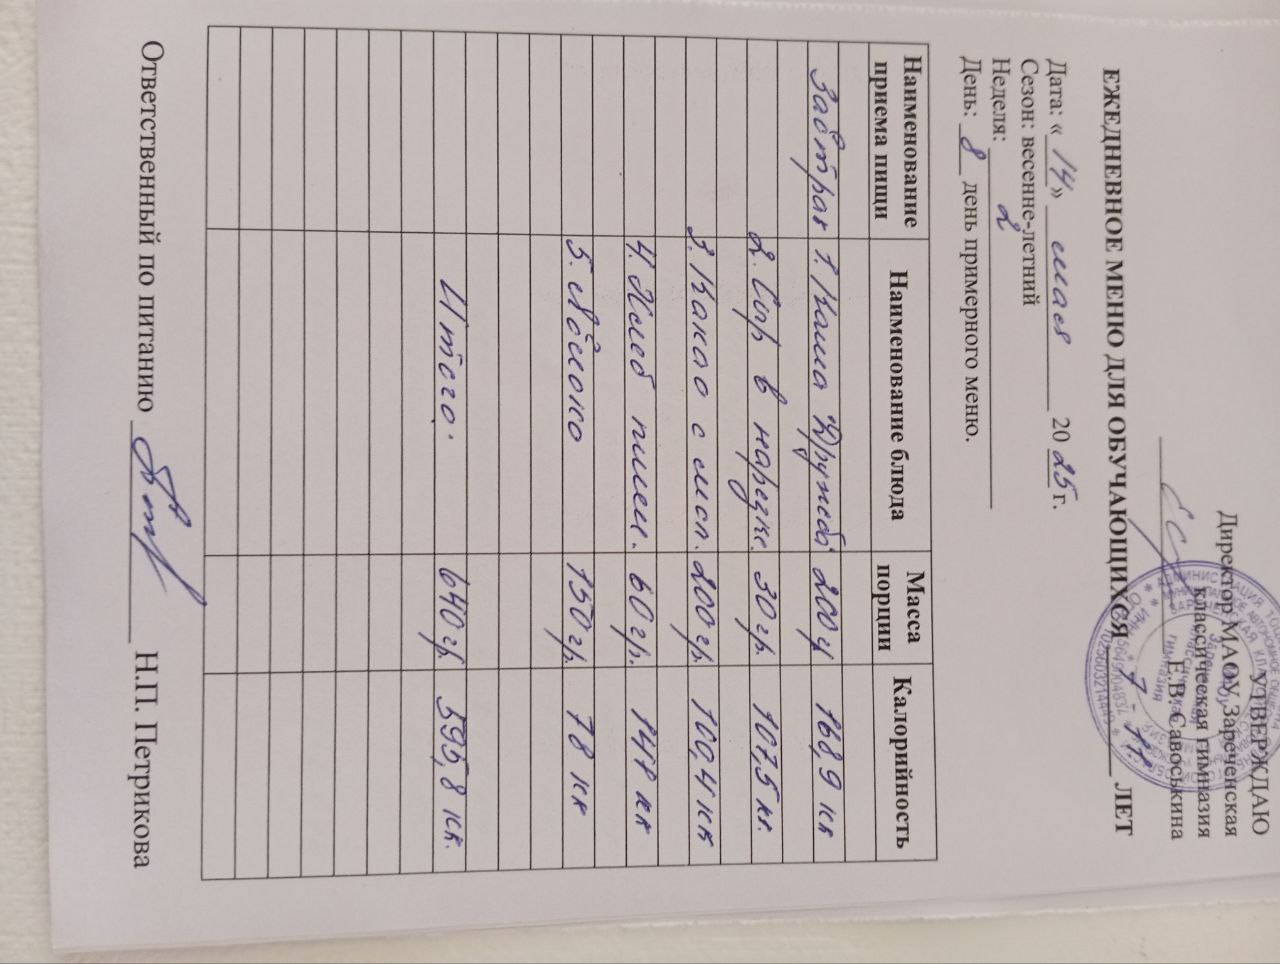 УТВЕРЖДАЮ
Директор МАОУ Зареченская
классическая гимназия
Е.В. Савоськина
ЕЖЕДНЕВНОЕ МЕНЮ ДЛЯ ОБУЧАЮЩИХСЯ 7 - 11 ЛЕТ
Дата: « 14 » мая 20 25 г.
Сезон: весенне-летний
Неделя: 2
День: 8 день примерного меню.
Наименование приема пищи Наименование блюда Масса порции Калорийность
Завтрак 1. Каша Дружба 200 гр 168,9 кк
2. Сыр в нарезке. 30 гр. 107,5 кк.
3. Какао с мол. 200 гр. 100,4 кк
4. Хлеб пшен. 60 гр. 141 кк
5. Яблоко 150 гр. 78 кк
Итого. 640 гр. 595,8 кк.
Ответственный по питанию Н.П. Петрикова